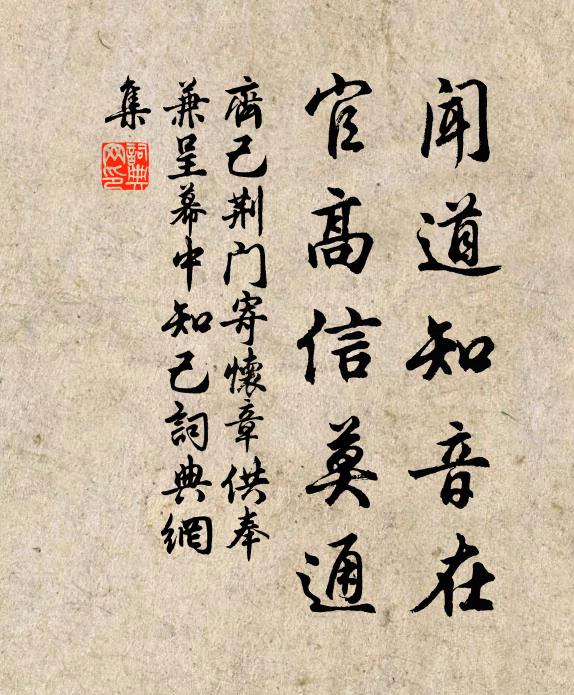 闻道知音在
官高信莫通
齐己荆门寄怀章供奉
兼呈幕中知己词典網
集
詞典网印